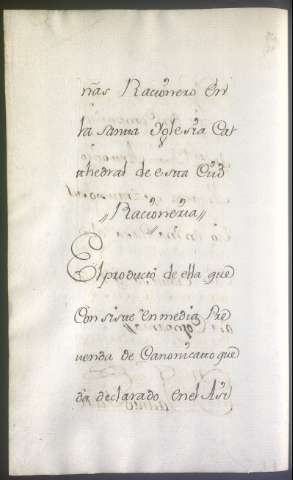 ñas Racionero En
la santa Yglesia Cat
thedral de esta Ciud
"Racioneria"
El producto de ella que
Consiste En media Pre
venda de Canonicato que
da declarado en el Asi